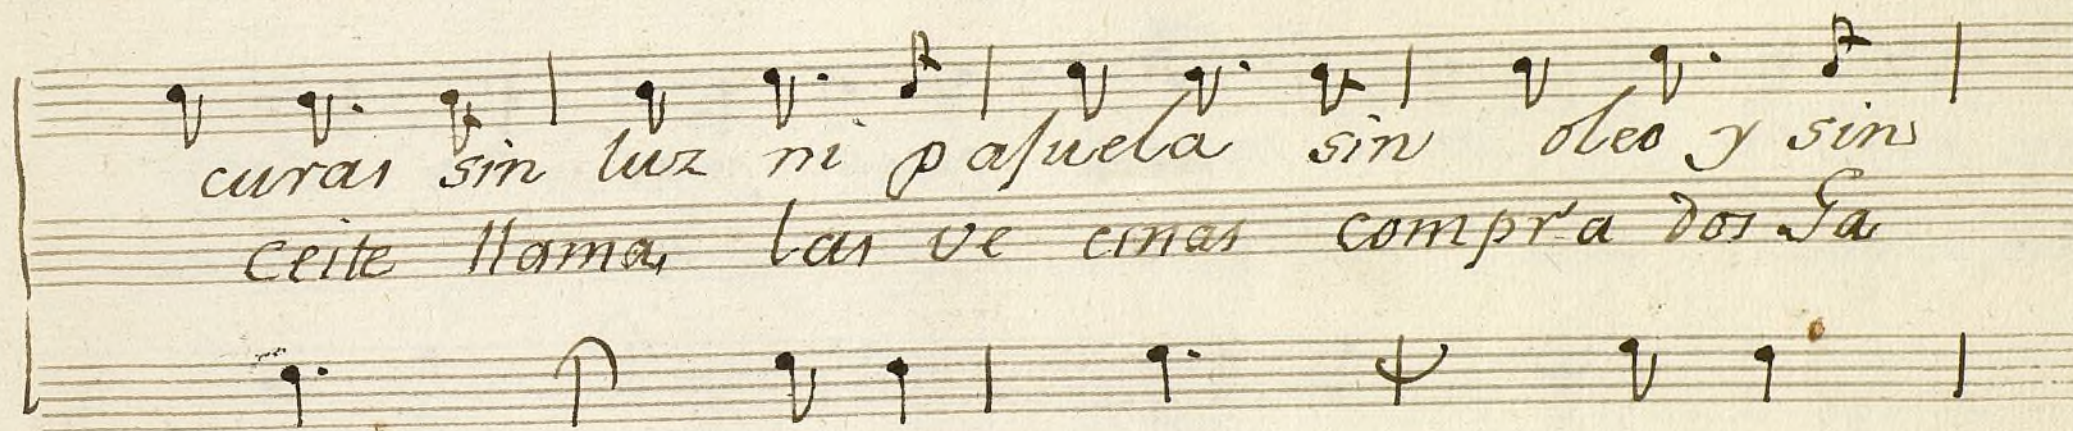 curas sin luz ni pajuela sin oleo y sin
ceite llama las ve cinas compra dos Ga